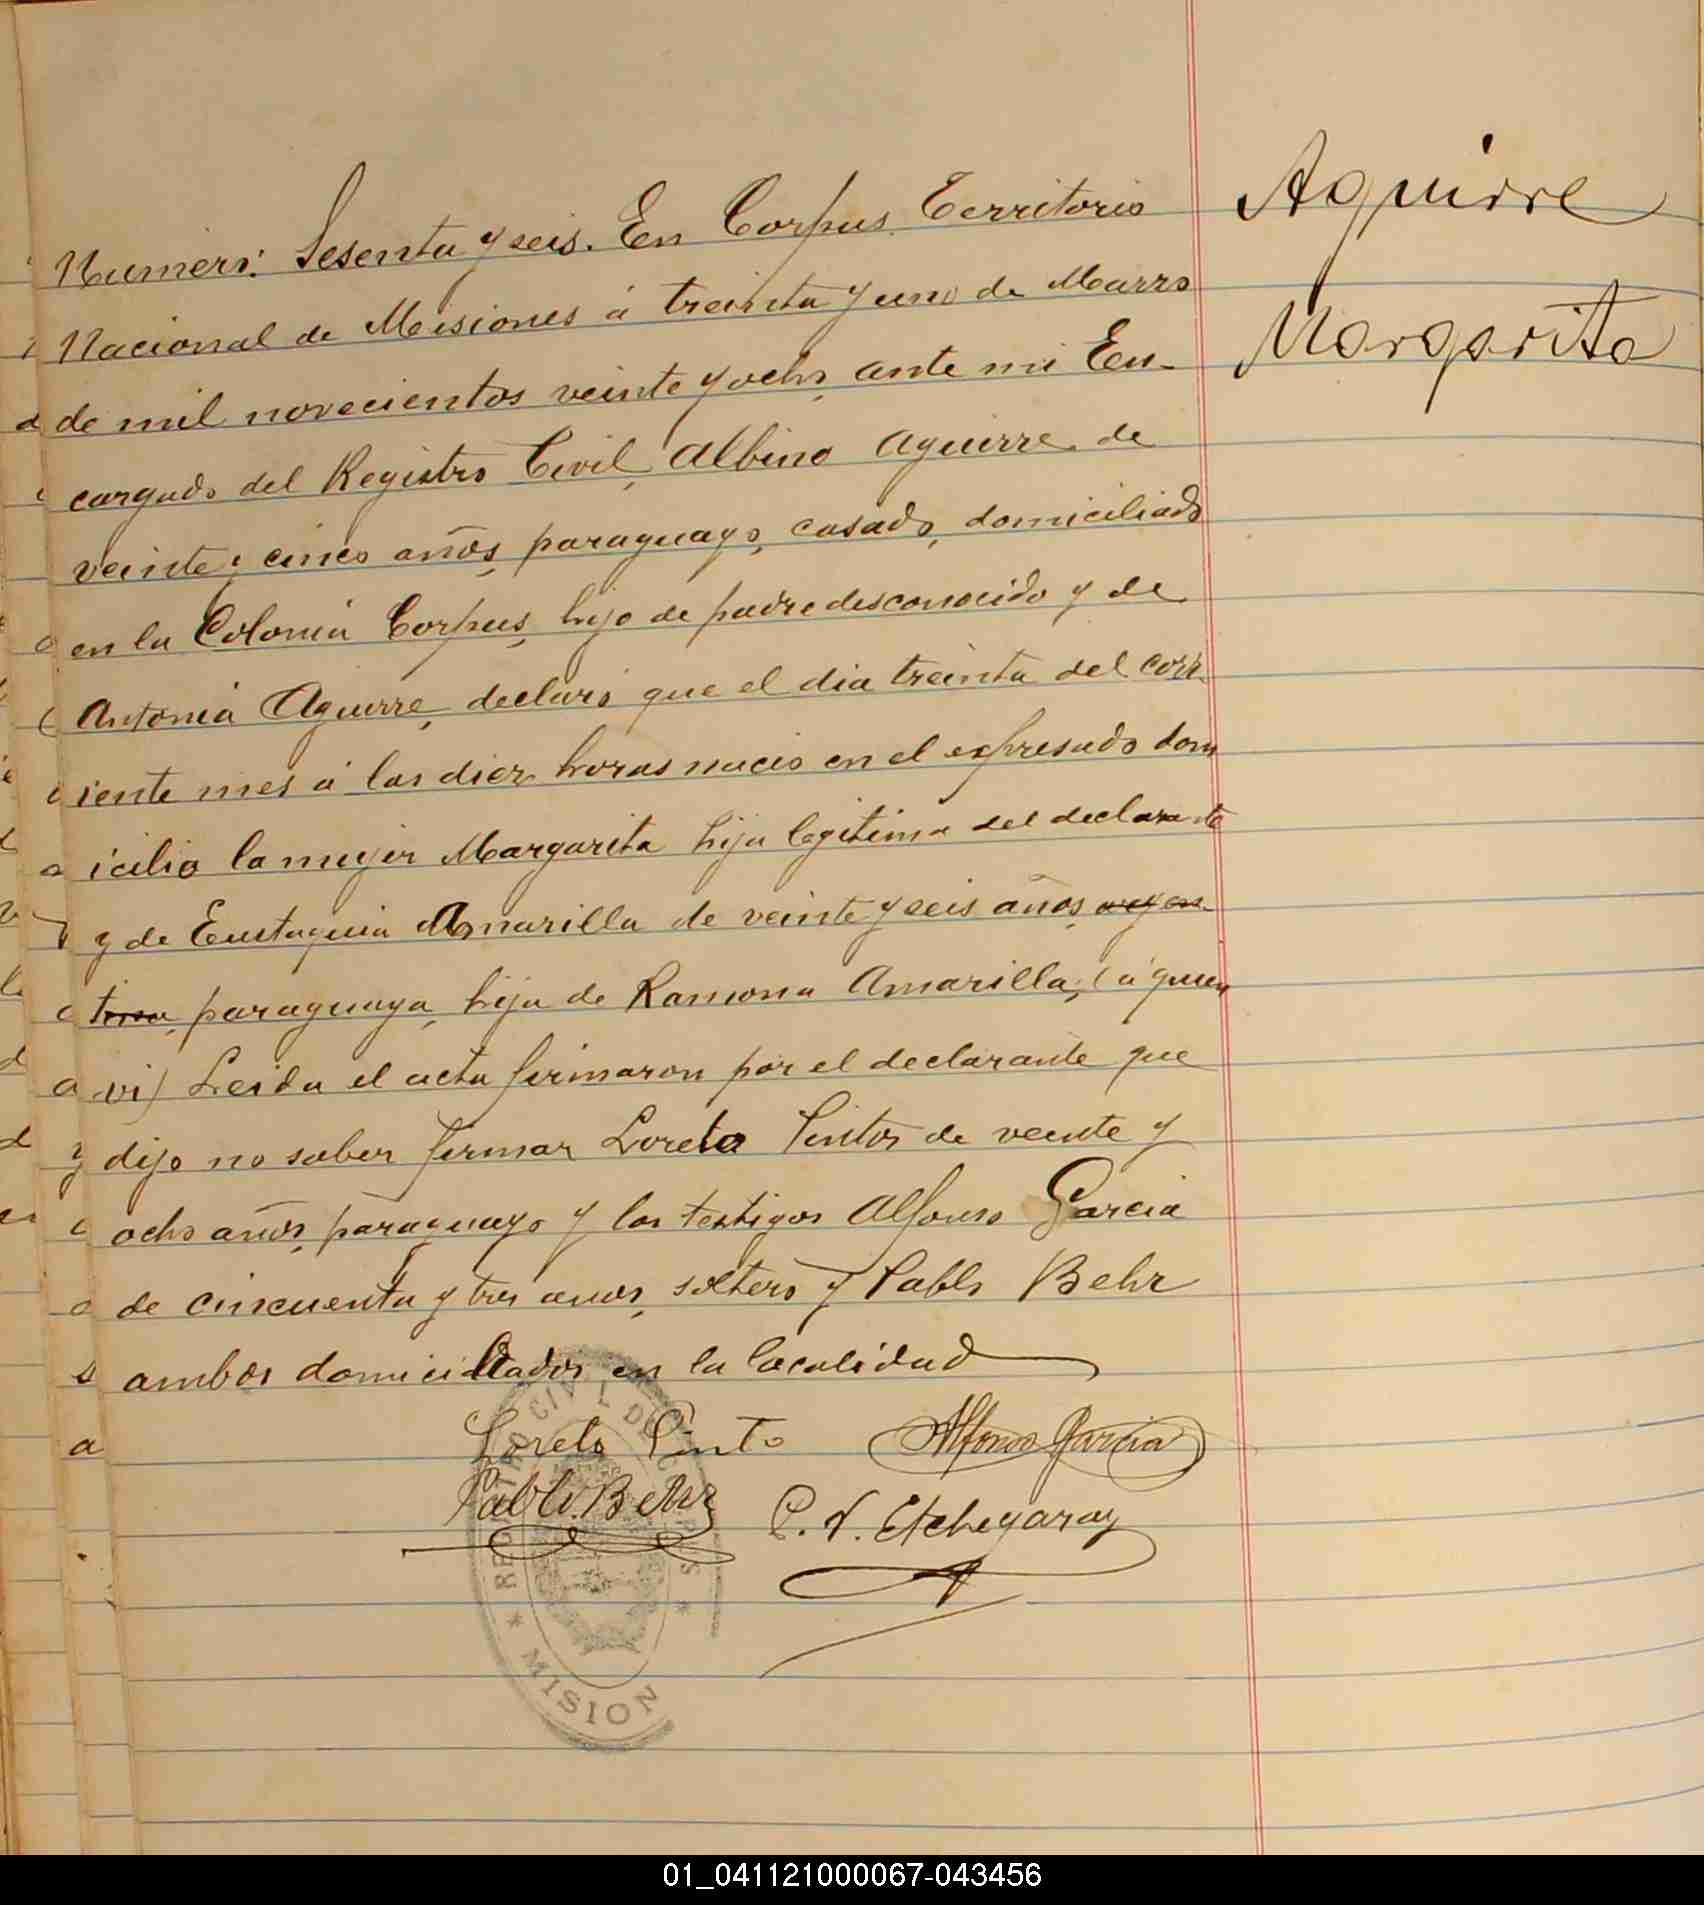 Aguirre
Margarita
Numero: Sesenta y seis. En Corpus Territorio
Nacional de Misiones á treinta y uno de Marzo
de mil novecientos veinte y ocho, ante mi En-
cargado del Registro Civil, Albino Aguirre de
veinte y cinco años, paraguayo, casado, domiciliado
en la Colonia Corpus, hijo de padre desconocido y de
Antonia Aguirre, declaró que el dia treinta del corr-
iente mes á las diez horas nació en el expresado dom
icilio la mujer Margarita hija legitima del declarante
y de Eustaquia Amarilla de veinte y seis años, argen-
tina, paraguaya, hija de Ramona Amarilla; (á quien
vi) Leida el acta firmaron por el declarante que
dijo no saber firmar Loreto Pintos de veinte y
ocho años, paraguayo y los testigos Alfonso Garcia
de cincuenta y tres anos, soltero y Pablo Behr
ambos domiciliados en la localidad
Loreto Pinto Alfonso Garcia
Pablo Behr C. V. Etchegaray
MISION
01_041121000067-043456